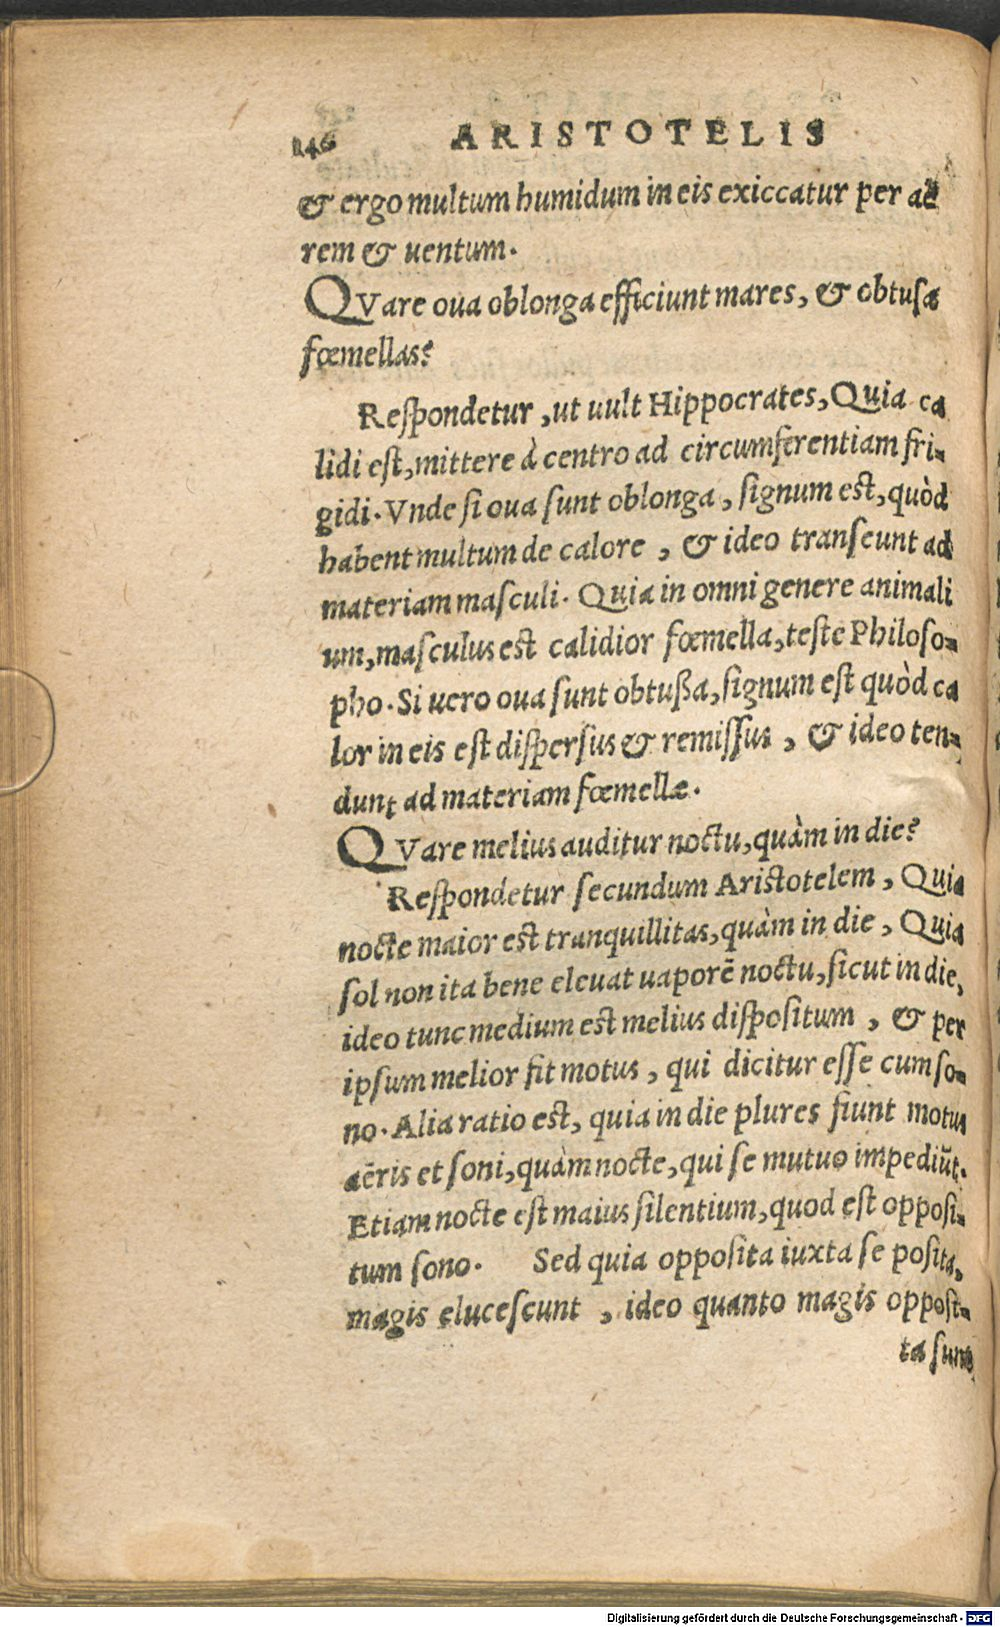 146 ARISTOTELIS
& ergo multum humidum in eis exiccatur per aë
rem & uentum.
QVare oua oblonga efficiunt mares, & obtusa
fœmellas?
Respondetur, ut uult Hippocrates, Quia ca
lidi est, mittere à centro ad circumferentiam fri-
gidi. Vnde si oua sunt oblonga, signum est, quòd
habent multum de calore, & ideo transeunt ad
materiam masculi. Quia in omni genere animali
um, masculus est calidior fœmella, teste Philoso-
pho. Si uero oua sunt obtußa, signum est quòd ca
lor in eis est dispersus & remissus, & ideo ten-
dunt ad materiam fœmellæ.
QVare melius auditur noctu, quàm in die?
Respondetur secundum Aristotelem, Quia
nocte maior est tranquillitas, quàm in die, Quia
sol non ita bene eleuat uaporē noctu, sicut in die,
ideo tunc medium est melius dispositum, & per
ipsum melior fit motus, qui dicitur esse cum so-
no. Alia ratio est, quia in die plures fiunt motus
aëris et soni, quàm nocte, qui se mutuo impediūt.
Etiam nocte est maius silentium, quod est opposi-
tum sono. Sed quia opposita iuxta se posita,
magis elucescunt, ideo quanto magis opposi-
ta sunt
Digitalisierung gefördert durch die Deutsche Forschungsgemeinschaft - DFG